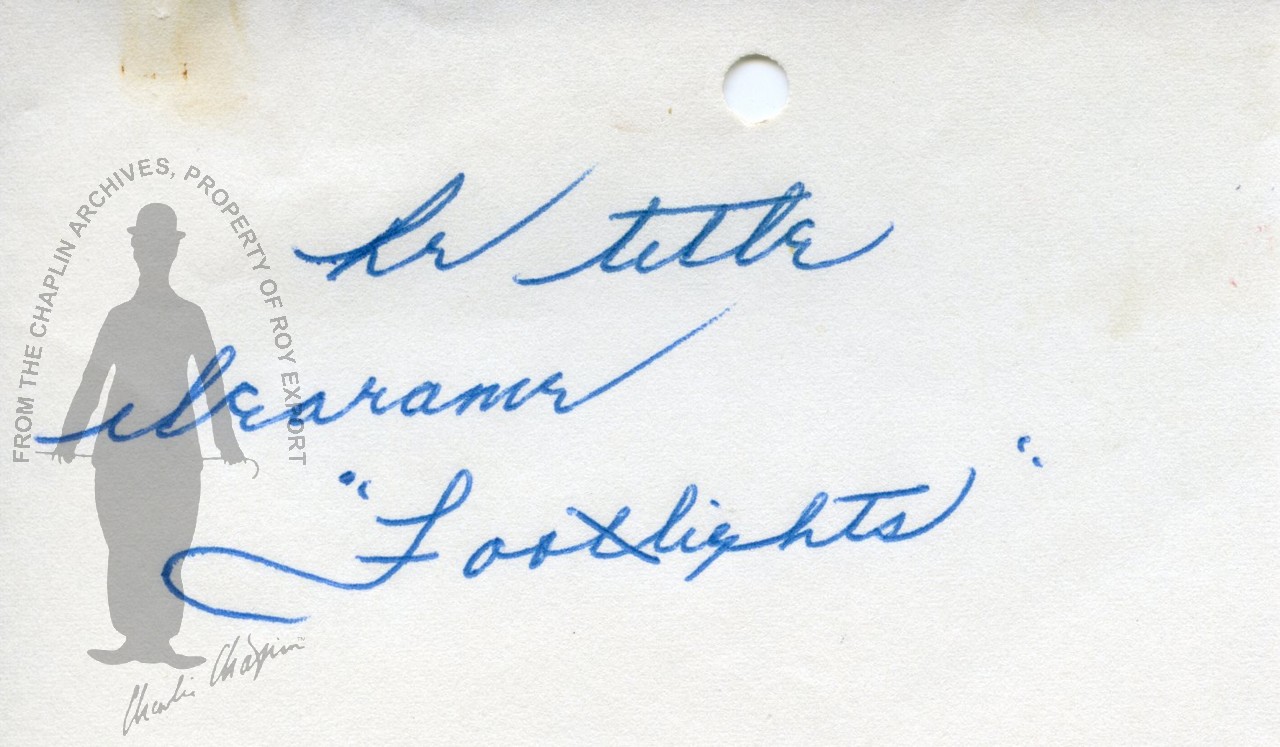 Re title
clearance
"Footlights"
FROM THE CHAPLIN ARCHIVES, PROPERTY OF ROY EXPORT
Charlie Chaplin